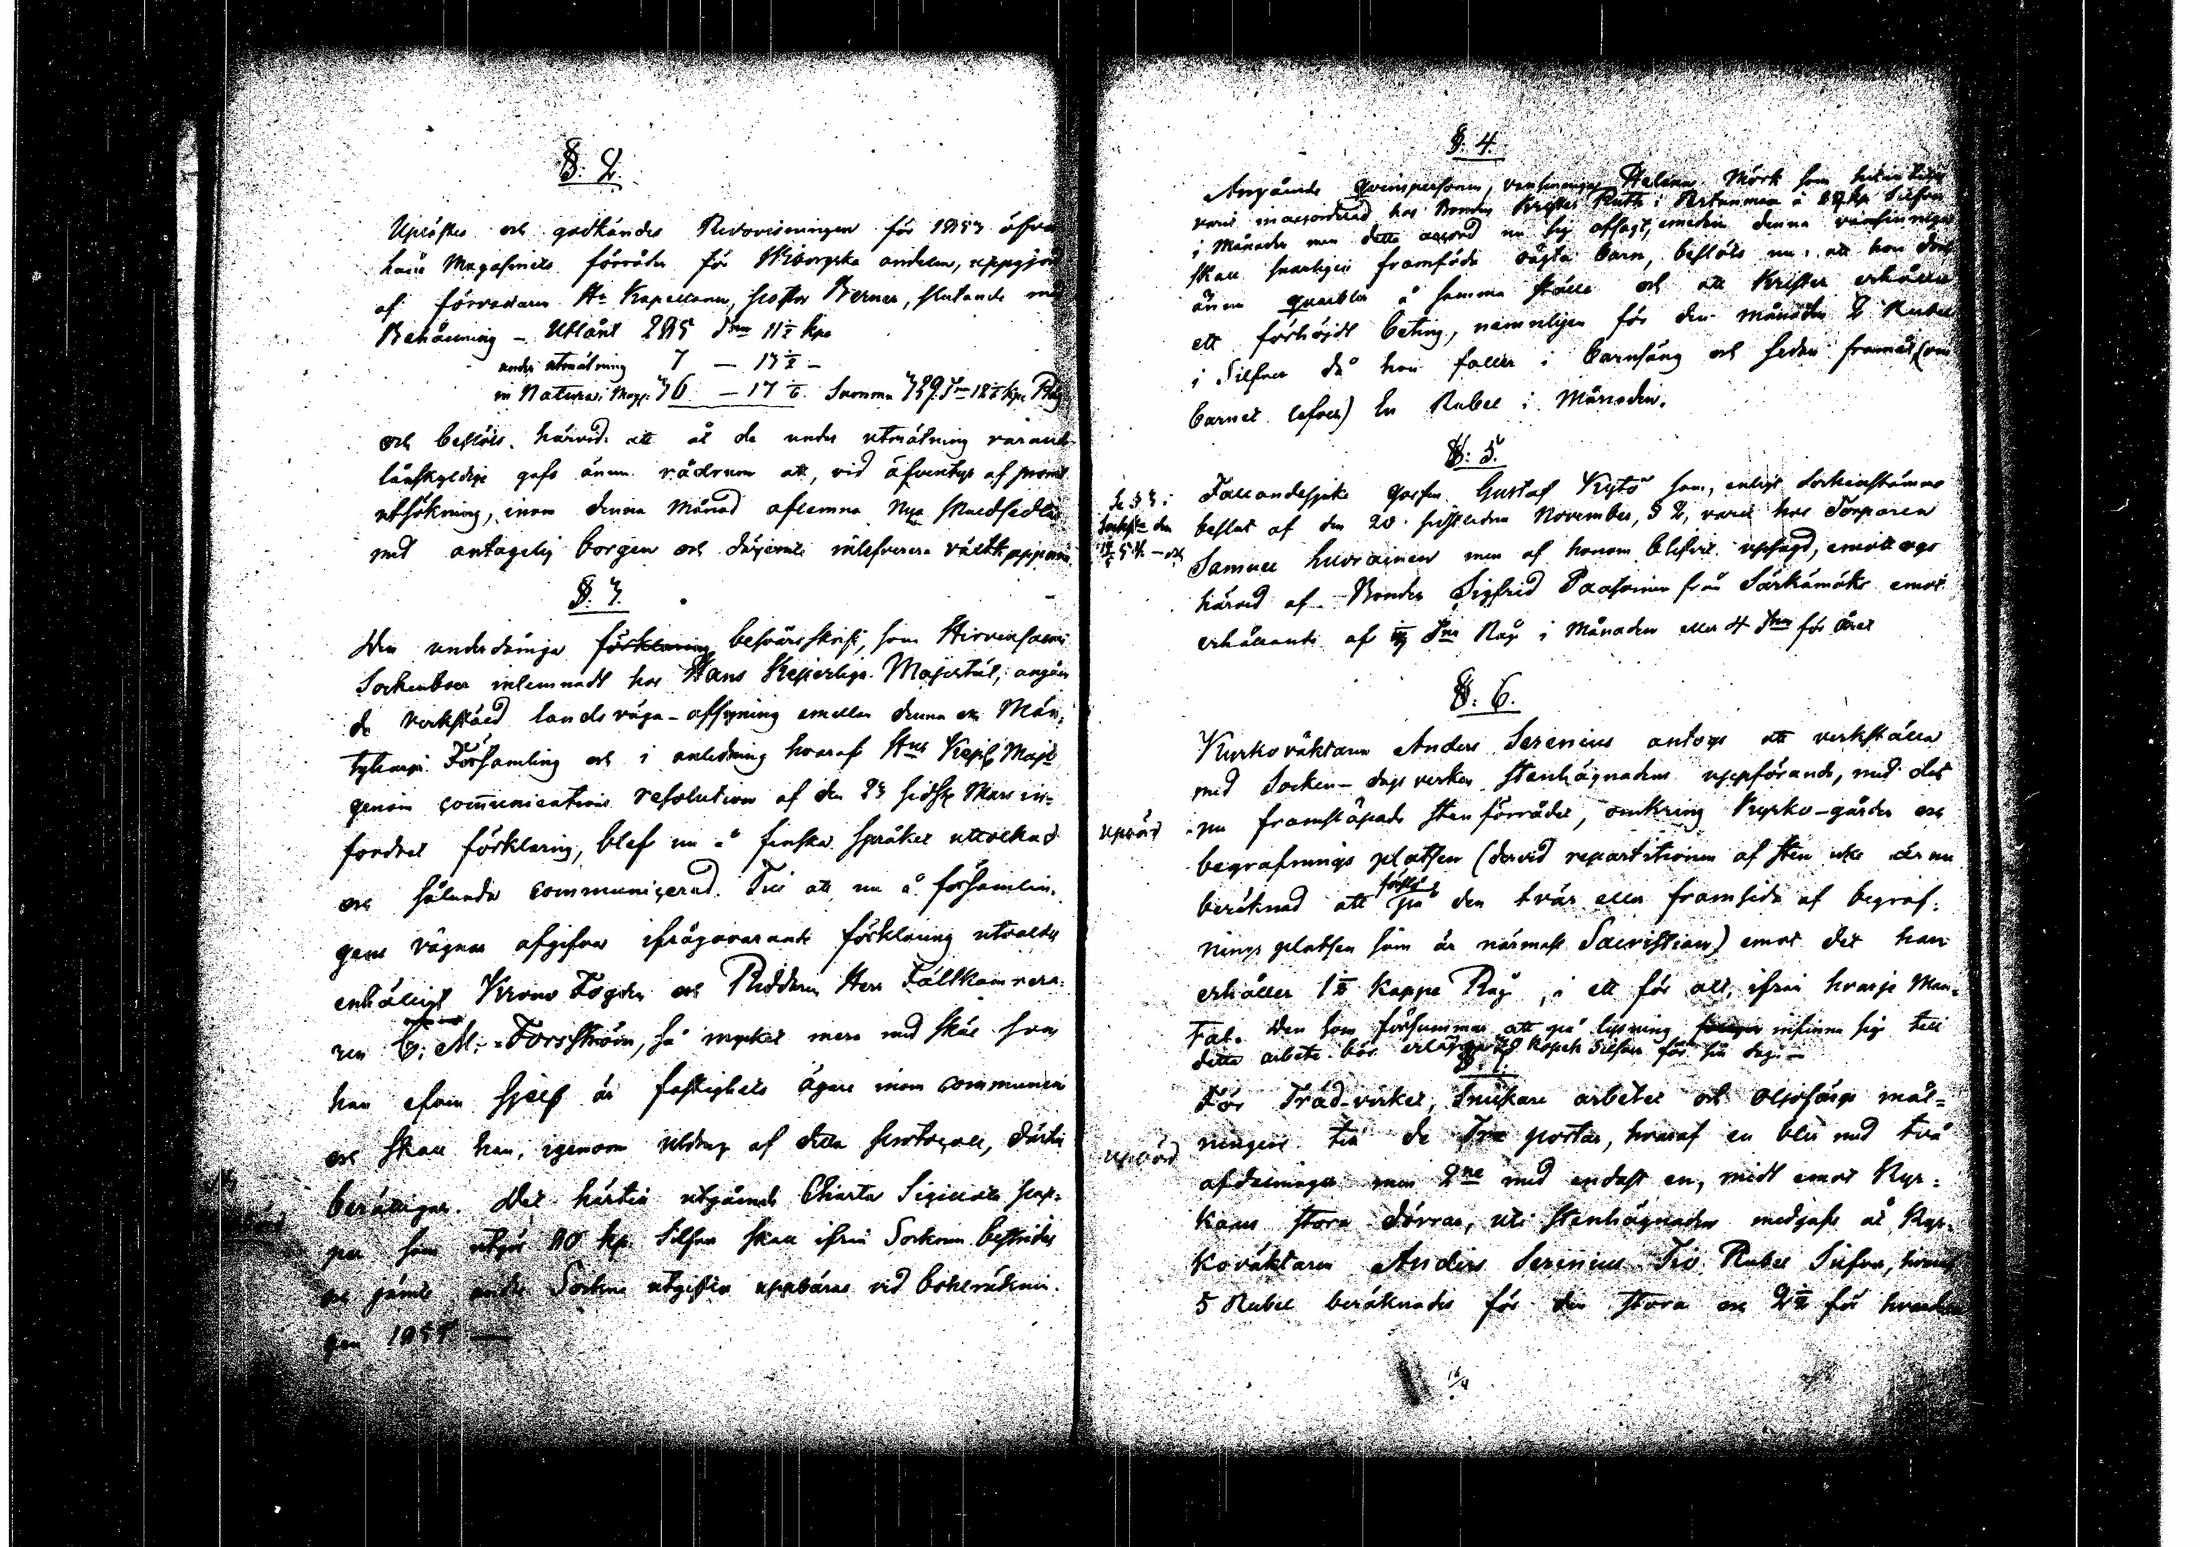 §. 2.
Uplästes och godkändes Redovisningen för 1853 öfver
Magasinets förråder för andelen, uppgjord
af förvaltaren Hr Kapellanen, Pastor Berner, slutande med
Behållning – Utlånt 285 Tnr 11½ kpr
under utmätning 7 – 13½ –
in Natura i Mag: 36 – 17 Summa 329 Tnr 12½ kpr Råg
och beslöts härvid att åt de under utmätning varande
låneskyldige gafs ännu rådrum att, vid äfventyr af
utsökning, inom denna Månad aflemna Nya Skuldsedlar
med antagelig borgen och därjemte inlefverera råettkapparne
§. 3.
Den underdåniga förklaring besvärsskrift, som Hirvensalmi
Sockenboer inlemnadt hos Hans Kejserliga Majestät, angåen
de verkstäld landsväga-afsyning emellan denna och Män-
tyharju Församling och i anledning hvaraf Hns Kejsl Majt
genom communications resolution af den 23 sidstl Mars in-
fordrat förklaring, blef nu å finska språket uttolkad
och sålunda communicerad. Till att nu å församlin-
gens vägnar afgifva ifrågavarande förklaring utvaldes
enhälligt Krono Fogden och Riddaren Herr Fältkamrera-
ren C. M. Forsström, så mycket mera med skäl som
han äfven sjelf är fastighets ägare inom communen
och skall han, igenom utdrag af detta protocoll, därtill
berättigas. Det härtill utgående Charta Sigillata pap-
per som utgör 80 kp. Silfver skall ifrån Socknen bestridas
och jämte andre Sockne utgifter uppbäras vid bohlräknin-
gen 1855. —
§. 4.
Angående qvinspersonen, vansinniga Helena Mörk som
varit inaccorderad hos Bonden Krister Ruth i Pertunmaa á kp Silfver
i Månaden men detta accord nu sig afsagt, emedan denna vansinniga
skall snarligen framföda oägta barn, beslöts nu: att hon
ännu qvarblir å samma ställe och att Krister erhåller
ett förhöjdt beting, nemligen för den månaden 2 Rubel
i Silfver då hon faller i barnsäng och sedan framåt (om
barnet lefver) En Rubel i Månaden.
§. 5.
Se § 3 i
Sockst: den
Fallandesjuke gossen Gustaf Kytö som, enligt Sockenstämmo
beslut af den 20 sistledne November, § 2, varit hos Torparen
Samuel men af honom blifvit uppsagd, emottogs
härvid af Bonden Sigfrid Paasoinen från Särkämäki emot
erhållande af Tna Råg i Månaden eller 4 Tnr för året
§. 6.
Kyrkoväktaren Anders Serenius antogs att verkställa
med Socken-dagsverken stenhägnadens uppförande, med det
upvisd
nu framsläpade stenförrådet, omkring Kyrko-gården och
begrafnings platsen (dervid repartitionen af sten icke är nu
beräknad att förslå på den tvär eller framsida af begraf-
nings platsen som är närmast Sacristian) emot det han
erhåller 1½ kappe Råg, i ett för allt, ifrån hvarje Man-
tal. Den som försummar att på lysning infinna sig till
detta arbete bör erlägga kopek Silfver för sin dag. —
§. 7.
För Träd-virket, Snickare arbetet och oljefärgs mål-
ningen till de Tre portar, hvaraf en blir med två
afdelningar men 2ne med endast en, midt emot Kyr-
kans stora dörrar, uti stenhägnaden medgafs åt Kyr-
koväktaren Anders Serenius Tio Rubel Silfver, hvaraf
5 Rubel beräknades för den stora och 2½ för hvardera